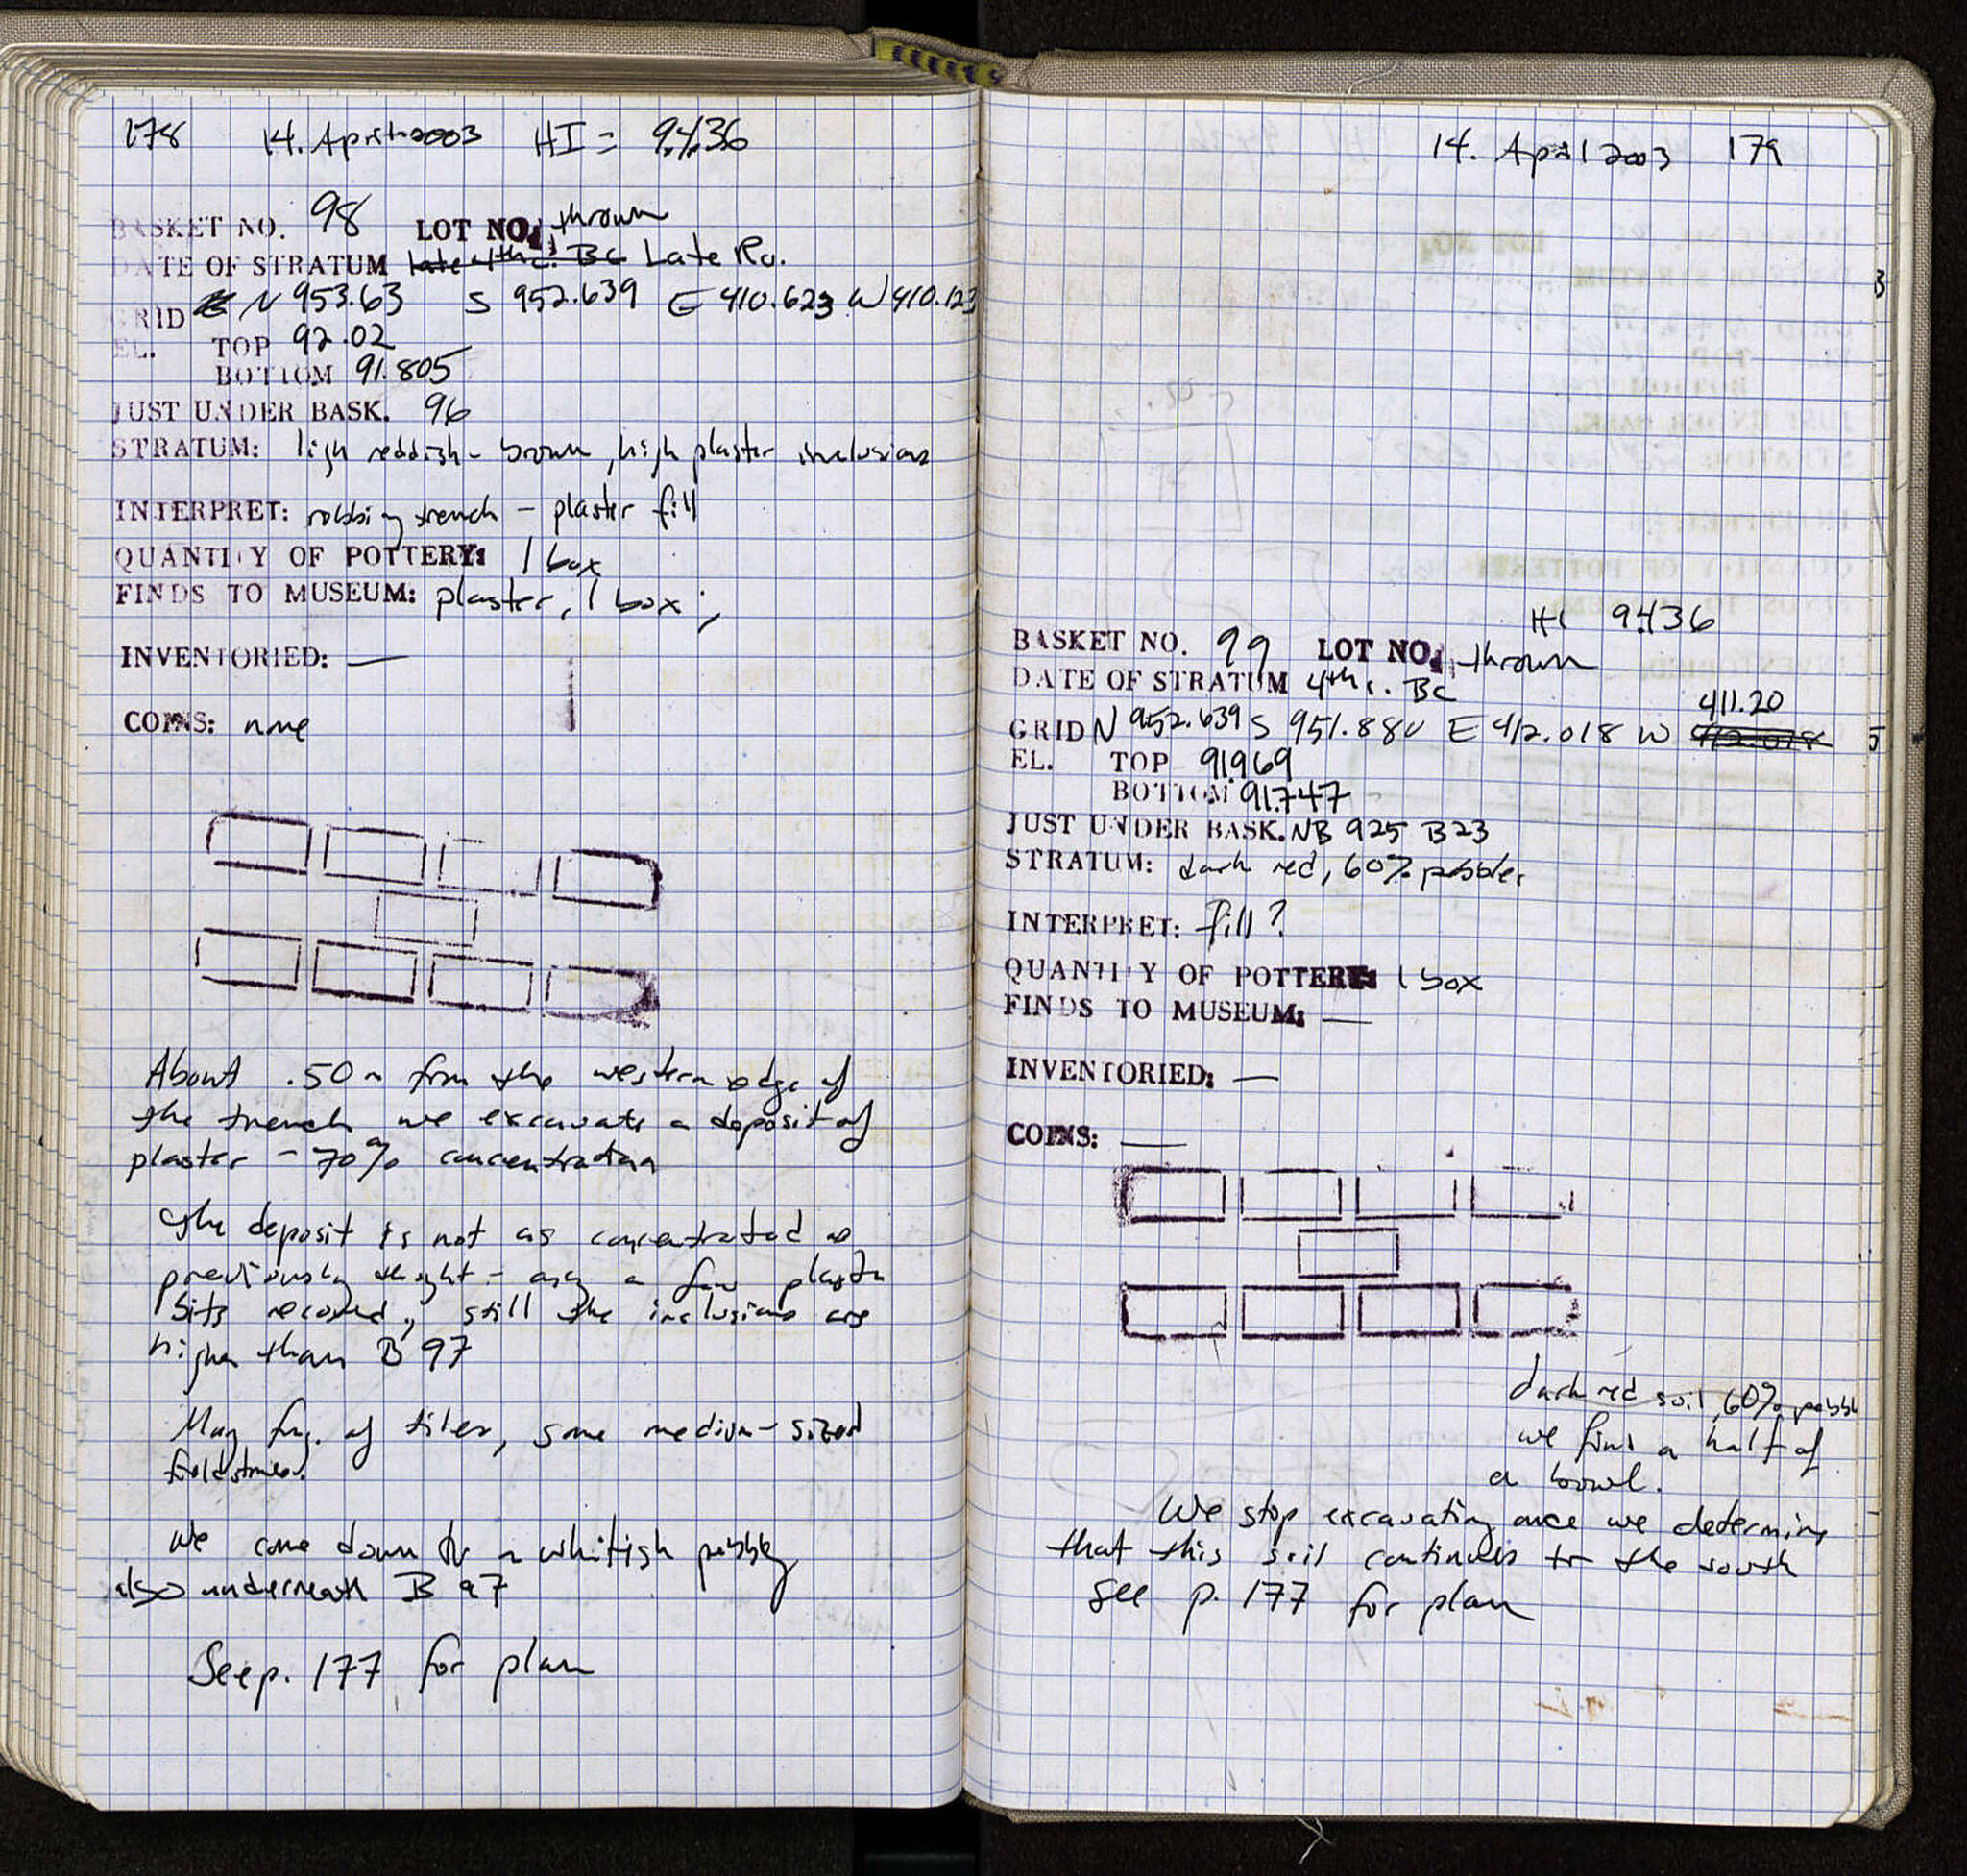 178 14. April 2003 HI = 94.36
BASKET NO. 98 LOT NO. thrown
DATE OF STRATUM late 4th c. BC Late Ro.
GRID N 953.63 S 952.639 E 410.623 W 410.123
EL. TOP 92.02
BOTTOM 91.805
JUST UNDER BASK. 96
STRATUM: ligh reddish-brown, high plaster inclusions
INTERPRET: robbing trench - plaster fill
QUANTITY OF POTTERY: 1 box
FINDS TO MUSEUM: plaster, 1 box;
INVENTORIED: —
COINS: none
About .50 m from the western edge of
the trench we excavate a deposit of
plaster - 70% concentration
The deposit is not as concentrated as
previously thought - only a few plaster
bits recovered, still the inclusions are
higher than B 97
Many frg. of tiles, some medium-sized
fieldstones.
We come down to a whitish pebbly
also underneath B 97
See p. 177 for plan
14. April 2003 179
HI 94.36
BASKET NO. 99 LOT NO. thrown
DATE OF STRATUM 4th c. BC
411.20
GRID N 952.639 S 951.880 E 412.018 W 412.018
EL. TOP 91.969
BOTTOM 91.747
JUST UNDER BASK. NB 925 B23
STRATUM: dark red, 60% pebbles
INTERPRET: fill?
QUANTITY OF POTTERY: 1 box
FINDS TO MUSEUM: —
INVENTORIED: —
COINS: —
dark red soil, 60% pebbl
we find a half of
a bowl.
We stop excavating once we determine
that this soil continues to the south
see p. 177 for plan